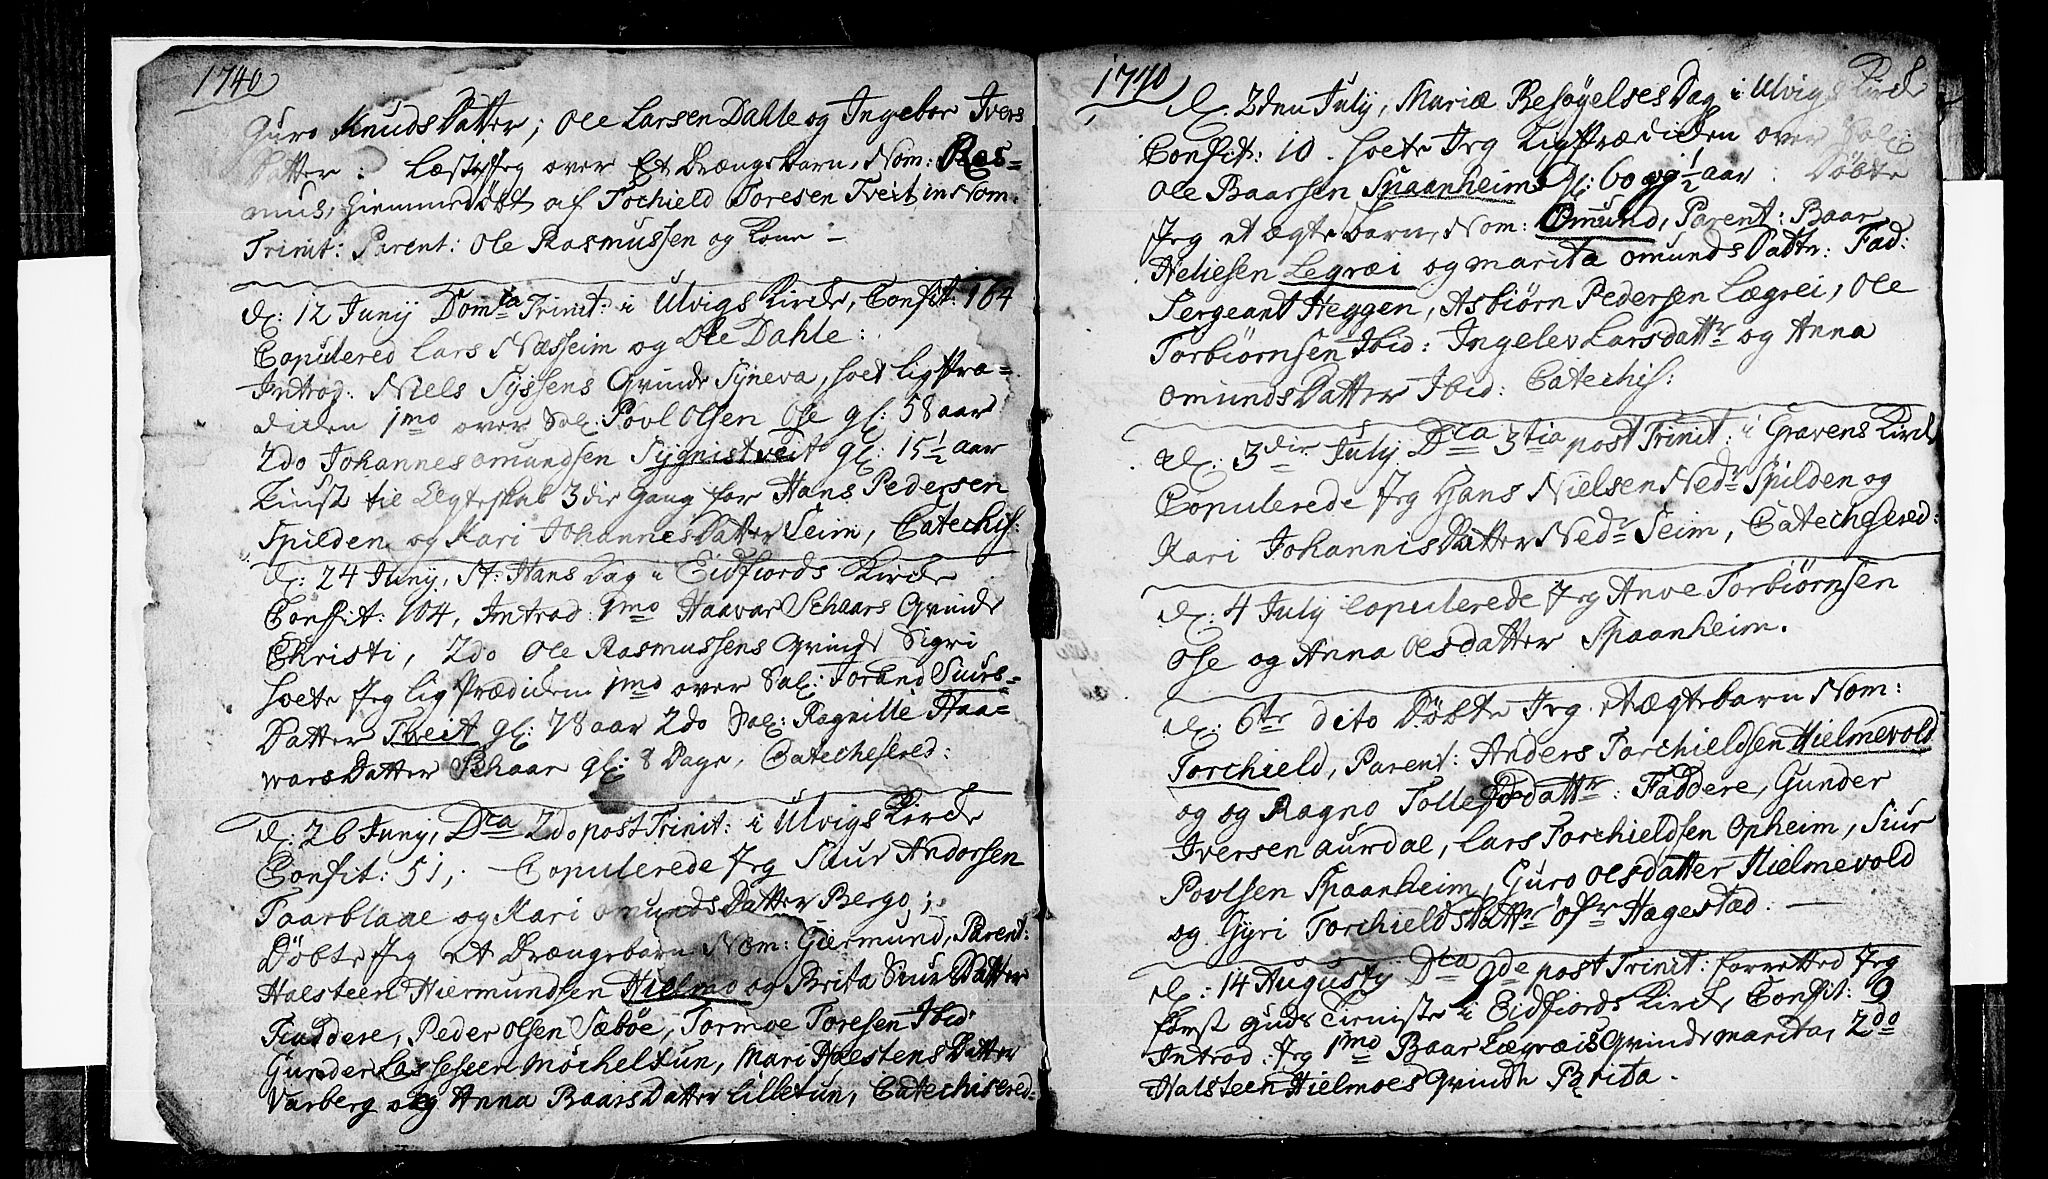 1740
Guro KnudsDatter; Ole Larsen Dahle og Ingebor Ivers
Datter: Læste Jeg over Et Drængebarn, Nom: Ras=
mus, hiemmedøbt af Torchield Toresen Tveit in Nom.
Trinit: Parent: Ole Rasmussen og Kone –
d: 12 Junij Domca Trinit: i Ulvigs Kircke, Confit: 164
Copulered Lars Næsseim og Ole Dahle:
Introd: Niels Syssens Qvinde Syneva, hoet ligPræ=
dicken 1mo over Sal: Povl Olsen Ose gl: 58 aar
2do Johannes omundsen Sygnistveit gl: 15½ aar
Liust til Ægteskab 3die gang for Hans Pedersen
Spilden og Kari JohannesDatter Seim, Catechis:
d: 24 Junij, St: Hans Dag i Eidfiords Kircke
Confit: 104, Introd: 1mo Haavar Schaars Qvinde
Christi, 2do Ole Rasmussens Qvinde Sigri
hoete Jeg lig Prædicken 1mo over Sal: Torand Siurs=
Datter Tveit gl: 78 aar 2do Sal: Ragnille Haa=
warsDatter Schaar gl: 8 Dage, Catechesered:
d: 26 Junij, Dca 2do post Trinit: i Ulvigs Kircke
Confit: 51, – Copulerede Jeg Siur Andorsen
Taarblaae og Kari omundsDatter Bergo;
Døbte Jeg et Drængebarn Nom: Giermund, Parent:
Halsteen Hiermundsen Hielmo og Brita SiurDatter
Faddere, Peder olsen Sæbøe, Tormoe Toresen Ibid:
Gunder Lassesen Møcheltun, Mari HalstensDatter
Varberg og Anna BaarsDatter Lilletun, Catechisered=
1740 8
d. 2den July, Mariæ BesøyelsesDag i Ulvigs Kircke
Confit: 10. hoete Jeg Ligprædicken over Sal:
Ole Baarsen Spaanheim gl: 60 og ½ aar. Døbte
Jeg et ægte barn, Nom: Omund, Parent: Baar
Heliesen Legræi og marita omundsDattr: Fad:
Sergeant Heggen, Asbiørn Pedersen Lægrei, Ole
Torbiørnsen Ibid: Ingelev Larsdattr og Anna
omundsDatter Ibid: Catechis:
d: 3die July Dca 3tia post Trinit: i Gravens Kircke
Copulerede Jeg Hans Nielsen Nedr Spilden og
Kari JohannisDatter Nedr Seim, Catechesered:
d: 4 July Copulerede Jeg Anve Torbiørnsen
Ose og Anna olsdatter Spaanheim.
d: 6te dito Døbte Jeg et ægtebarn Nom:
Torchield, Parent: Anders Torchieldsen Hielmevold
og og Ragno Tollefsdattr: Faddere, Gunder
Iversen aurdal, Lars Torchieldsen Opheim, Siur
Povlsen Spaanheim, Guro olsdatter Hielmevold
og Gyri Torchieldsdattr ofr Hagestad. –
d: 14 Augusty Dca 9de post Trinit: forretted Jeg
først guds Tieniste i Eidfiords Kircke Confit: 9
Introd: Jeg 1mo Baar Lægræis Qvinde marita, 2do
Halsteen Hielmoes Qvinde Brita.